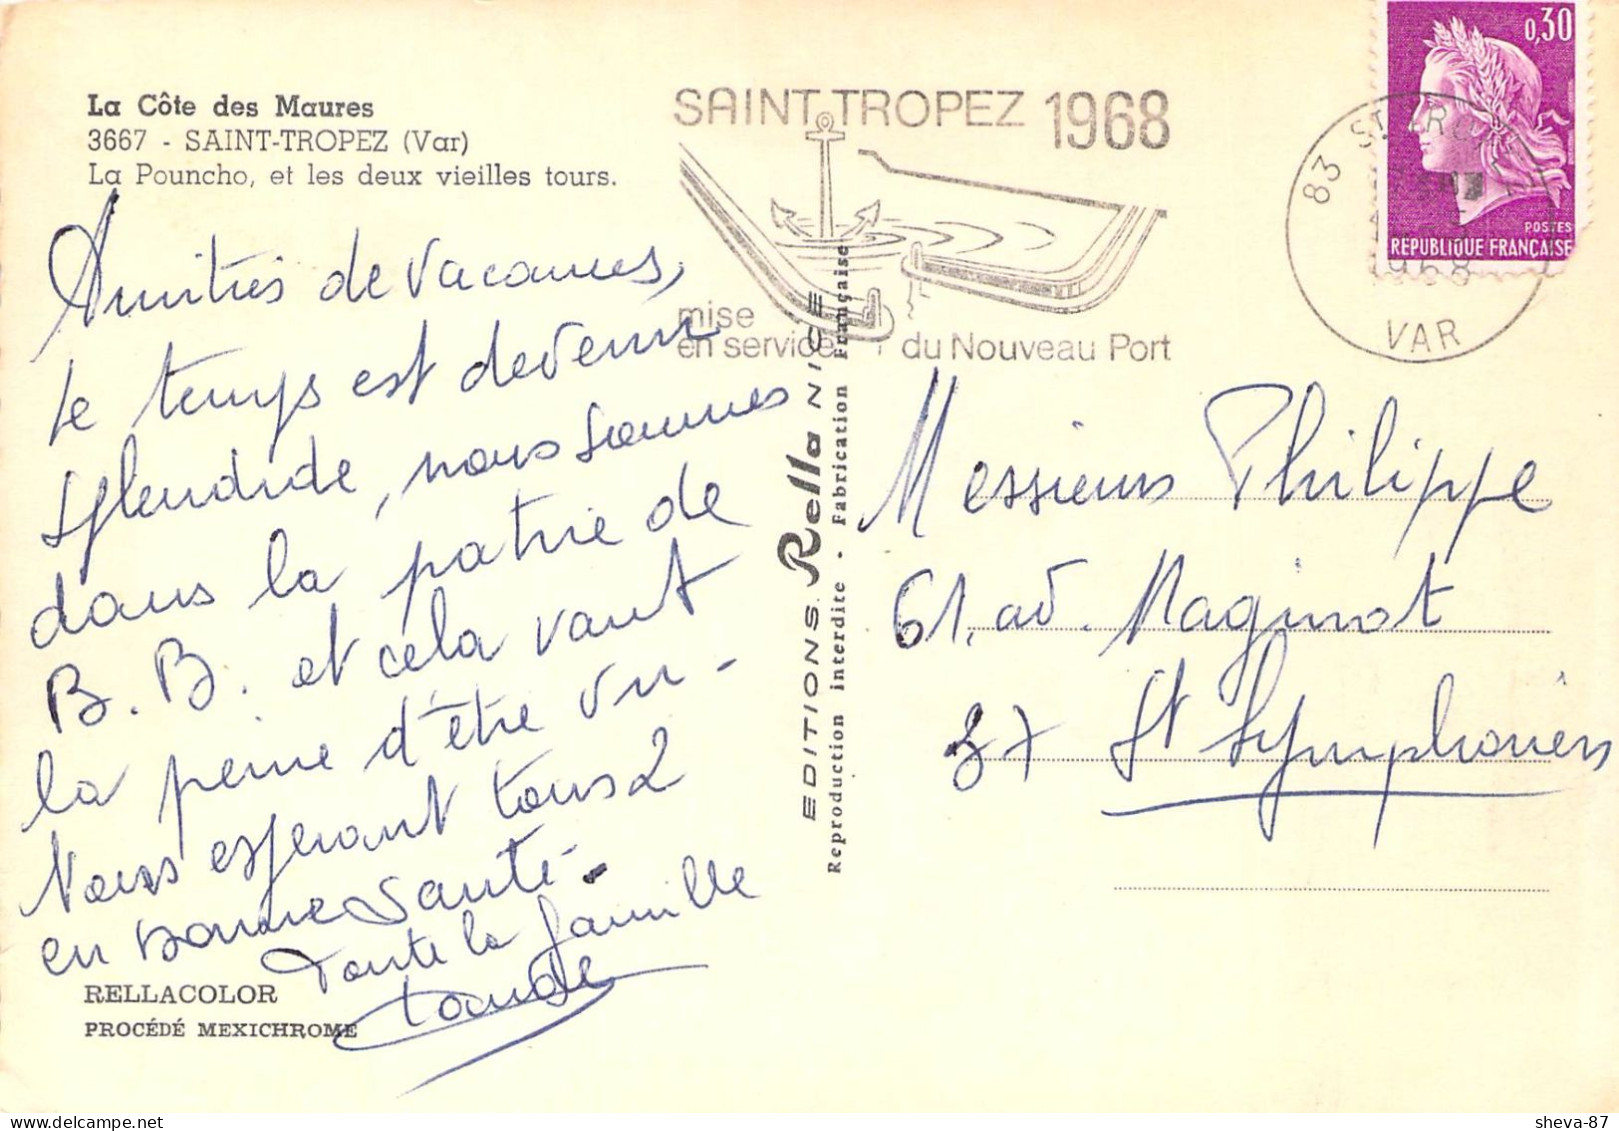 La Côte des Maures
3667 - SAINT-TROPEZ (Var)
La Pouncho, et les deux vieilles tours.
SAINT TROPEZ 1968
mise
en service du Nouveau Port
83 ST TRO
1968
VAR
0,30
POSTES
RÉPUBLIQUE FRANÇAISE
Amitiés de vacances,
le temps est devenu
splendide, nous sommes
dans la patrie de
B. B. et cela vaut
la peine d'être vu -
Nous espérant tous 2
en bonne santé.
Toute la famille
EDITIONS Rella NICE
Reproduction interdite - Fabrication Française
Messieurs Philippe
61, av. Maginot
37 St Symphorien
RELLACOLOR
PROCÉDÉ MEXICHROME
sheva-87